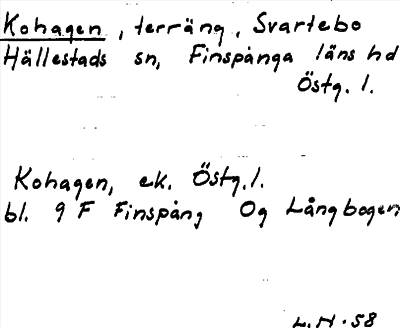 Kohagen, terräng, Svartebo
Hällestads sn, Finspånga läns hd
Östg. l.
Kohagen, ek. Östg. l.
bl. 9 F Finspång Og Långbogen
L.H. 58